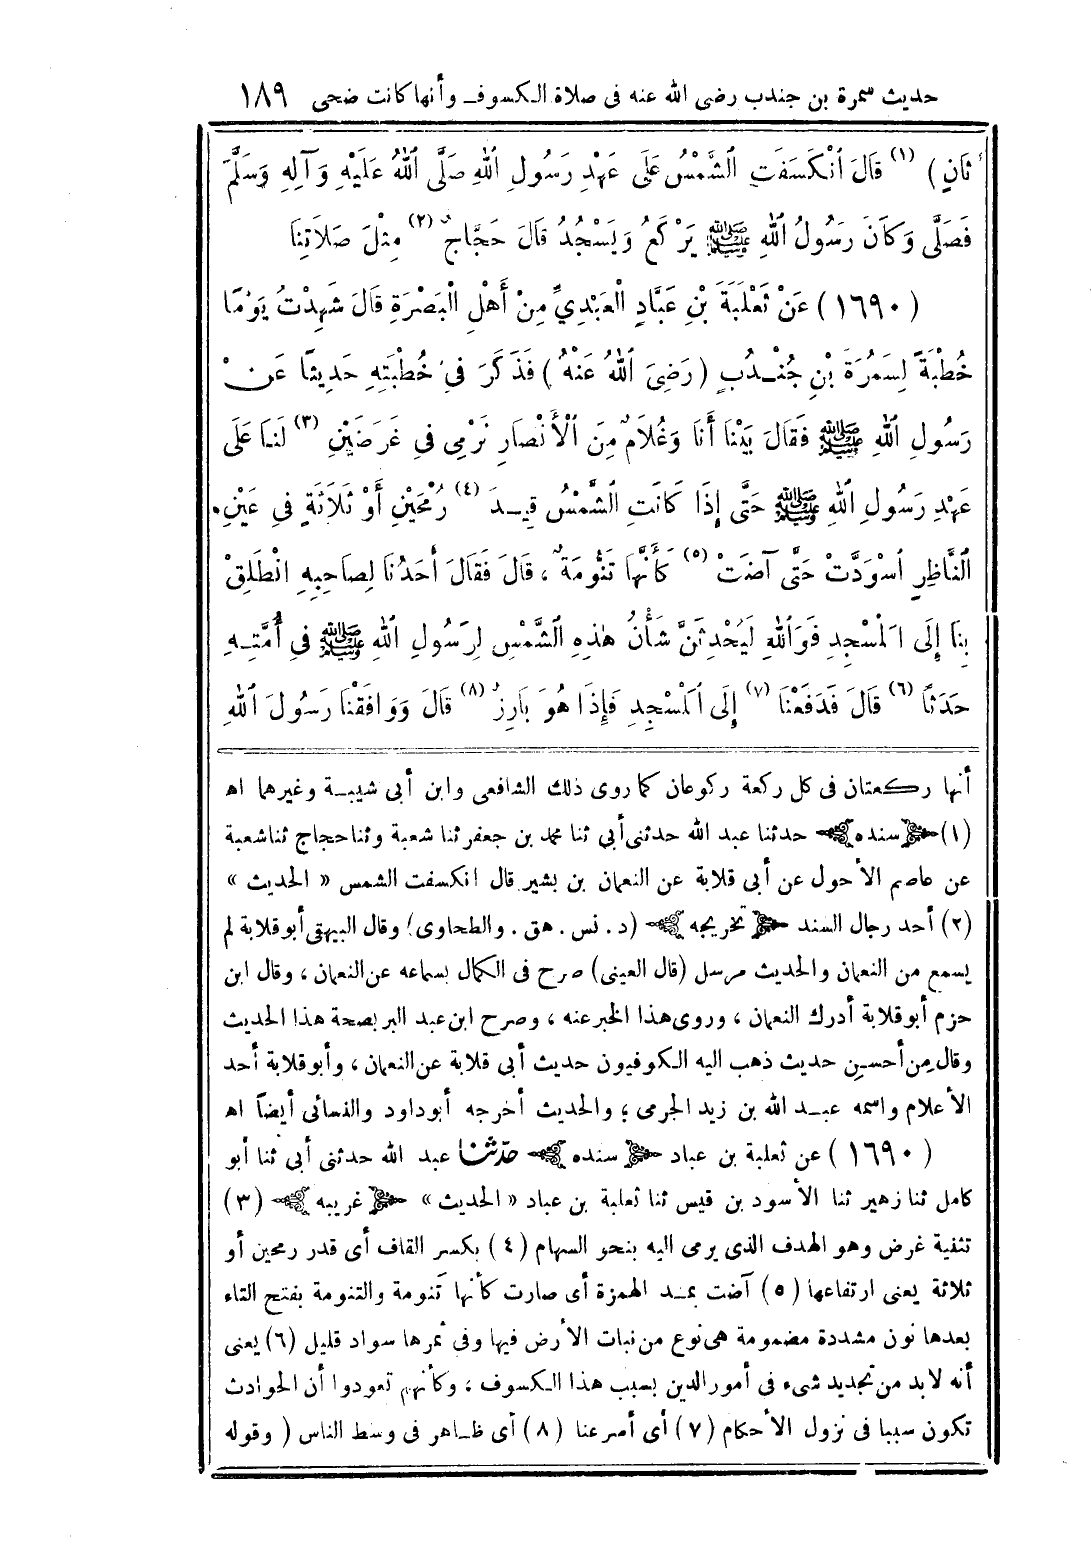 حديث سمرة بن جندب رضى الله عنه فى صلاة الكسوف وأنها كانت ضحى ١٨٩
ثَانٍ) (١) قَالَ اُنْكَسَفَتِ الشَّمْسُ عَلَى عَهْدِ رَسُولِ اللهِ صَلَّى اللهُ عَلَيْهِ وَآلِهِ وَسَلَّمَ
فَصَلَّى وَكَانَ رَسُولُ اللهِ ﷺ يَرْكَعُ وَيَسْجُدُ قَالَ حَجَّاجٌ (٢) مِثْلَ صَلَاتِنَا
(١٦٩٠) عَنْ ثَعْلَبَةَ بْنِ عَبَّادٍ الْعَبْدِيِّ مِنْ أَهْلِ الْبَصْرَةِ قَالَ شَهِدْتُ يَوْمًا
خُطْبَةً لِسَمُرَةَ بْنِ جُنْدُبٍ (رَضِىَ اللهُ عَنْهُ) فَذَكَرَ فِى خُطْبَتِهِ حَدِيثًا عَنْ
رَسُولِ اللهِ ﷺ فَقَالَ بَيْنَا أَنَا وَغُلَامٌ مِنَ الْأَنْصَارِ نَرْمِى فِى غَرَضَيْنِ (٣) لَنَا عَلَى
عَهْدِ رَسُولِ اللهِ ﷺ حَتَّى إِذَا كَانَتِ الشَّمْسُ قِيدَ (٤) رُمْحَيْنِ أَوْ ثَلَاثَةٍ فِى عَيْنِ
النَّاظِرِ اُسْوَدَّتْ حَتَّى آضَتْ (٥) كَأَنَّهَا تَنُّومَةٌ، قَالَ فَقَالَ أَحَدُنَا لِصَاحِبِهِ انْطَلِقْ
بِنَا إِلَى الْمَسْجِدِ فَوَاللهِ لَيُحْدِثَنَّ شَأْنُ هٰذِهِ الشَّمْسِ لِرَسُولِ اللهِ ﷺ فِى أُمَّتِهِ
حَدَثًا (٦) قَالَ فَدَفَعْنَا (٧) إِلَى الْمَسْجِدِ فَإِذَا هُوَ بَارِزٌ (٨) قَالَ وَوَافَقْنَا رَسُولَ اللهِ
أنها ركعتان فى كل ركعة ركوعان كما روى ذلك الشافعى وابن أبى شيبة وغيرهما اه
(١) سنده حدثنا عبد الله حدثنى أبي ثنا محمد بن جعفر ثنا شعبة وثنا حجاج ثنا شعبة
عن عاصم الأحول عن أبى قلابة عن النعمان بن بشير قال انكسفت الشمس « الحديث »
(٢) أحد رجال السند تخريجه (د. نس. هق. والطحاوى) وقال البيهقى أبو قلابة لم
يسمع من النعمان والحديث مرسل (قال العينى) صرح فى الكمال بسماعه عن النعمان، وقال ابن
حزم أبو قلابة أدرك النعمان، وروى هذا الخبر عنه، وصرح ابن عبد البر بصحة هذا الحديث
وقال من أحسن حديث ذهب اليه الكوفيون حديث أبى قلابة عن النعمان، وأبو قلابة أحد
الأعلام واسمه عبد الله بن زيد الجرمى؛ والحديث أخرجه أبو داود والنسائى أيضاً اه
(١٦٩٠) عن ثعلبة بن عباد سنده حدّثنا عبد الله حدثنى أبى ثنا أبو
كامل ثنا زهير ثنا الأسود بن قيس ثنا ثعلبة بن عباد « الحديث » غريبه (٣)
تثنية غرض وهو الهدف الذى يرمى اليه بنحو السهام (٤) بكسر القاف أى قدر رمحين أو
ثلاثة يعنى ارتفاعها (٥) آضت بمد الهمزة أى صارت كأنها تنومة والتنومة بفتح التاء
بعدها نون مشددة مضمومة هى نوع من نبات الأرض فيها وفى ثمرها سواد قليل (٦) يعنى
أنه لابد من تجديد شىء فى أمور الدين بسبب هذا الكسوف، وكأنهم تعودوا أن الحوادث
تكون سببا فى نزول الأحكام (٧) أى أسرعنا (٨) أى ظاهر فى وسط الناس (وقوله